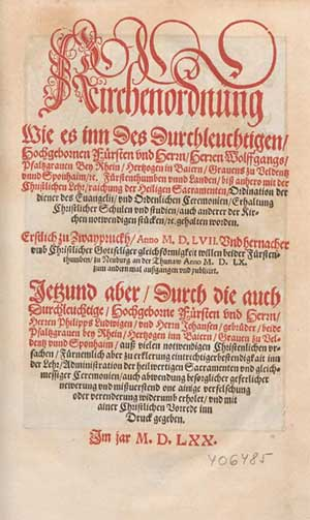 Kirchenordnung
Wie es inn Des Durchleuchtigen/
Hochgebornen Fürsten vnd Hern/ Herren Wolffgangs/
Pfaltzgrauen Bey Rhein/ Hertzogen in Baiern/ Grauens zu Veldentz
vnnd Sponhaim/ꝛc. Fürstenthumben vnnd Landen/ biß anhero mit der
Christlichen Lehr/ raichung der Heiligen Sacramenten/ Ordination der
diener des Euangelij/ vnd Ordenlichen Ceremonien/ Erhaltung
Christlicher Schulen vnd studien/ auch anderer der Kir-
chen notwendigen stücken/ꝛc. gehalten worden.
Erstlich zu Zwaypruckh/ Anno M. D. LVII. Vnd hernacher
vmb Christlicher Gottseliger gleichförmigkeit willen beider Fürsten-
thumben/ zu Neuburg an der Thunaw Anno M. D. LX.
zum andern mal außgangen vnd publicirt.
Jetzund aber/ Durch die auch
Durchleuchtige/ Hochgeborne Fürsten vnd Herrn/
Herren Philips Ludwigen/ vnd Herrn Johansen/ gebrüder/ beide
Pfaltzgrauen bey Rhein/ Hertzogen inn Baiern/ Grauen zu Vel-
dentz vnnd Sponhaim/ auß vielen notwendigen Christenlichen vr-
sachen/ Fürnemlich aber zu erklerung eintrechtiger bestendigkait inn
der Lehr/ Administration der heilwertigen Sacramenten vnd gleich-
messiger Ceremonien/ auch abwendung besorglicher geferlicher
newerung vnd mißuerstend one ainige verfelschung
oder verenderung widerumb erholet/ vnd mit
ainer Christlichen Vorrede inn
Druck gegeben.
Im jar M. D. LXX.
406485